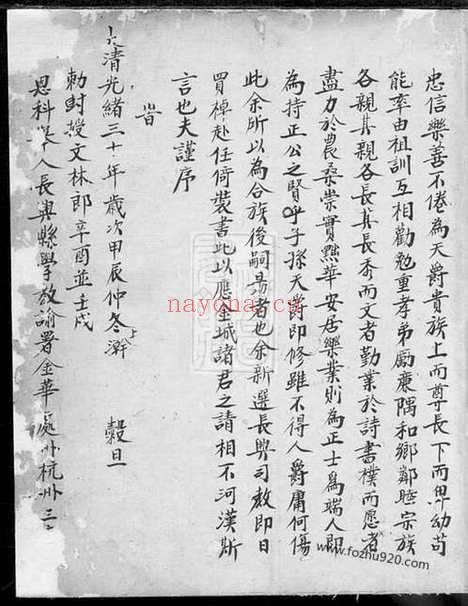 忠信樂善不倦為天爵貴族上而尊長下而卑幼苟
能率由祖訓互相勸勉重孝弟勵廉隅和鄉鄰睦宗族
各親其親各長其長秀而文者勤業於詩書樸而愿者
盡力於農桑崇實黜華安居樂業則為正士為端人即
為持正公之賢乎子孫天爵即修雖不得人爵庸何傷
此余所以為合族後嗣勗者也余新選長興司教即日
買棹赴任倚裝書此以應奎城諸君之請相不河漢斯
言也夫謹序
旹
大清光緒三十年歲次甲辰仲冬澣 穀旦
勅封授文林郎辛酉並壬戌
恩科舉人長興縣學教諭署金華處州杭州三
nayona.cn
www.fozhu920.com